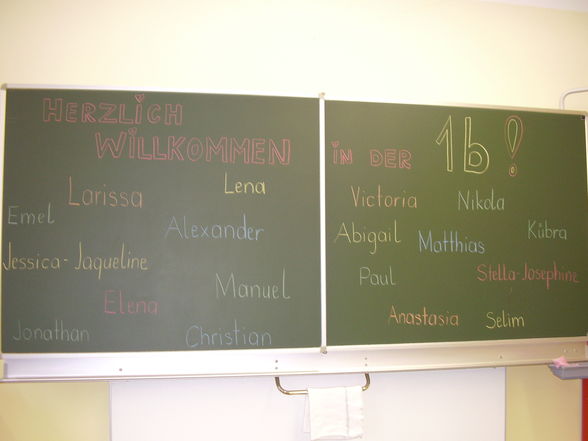 HERZLICH
WILLKOMMEN
Larissa
Lena
Emel
Alexander
Jessica-Jaqueline
Manuel
Elena
Jonathan
Christian
IN DER 1b!
Victoria
Nikola
Abigail
Matthias
Kübra
Paul
Stella-Josephine
Anastasia
Selim